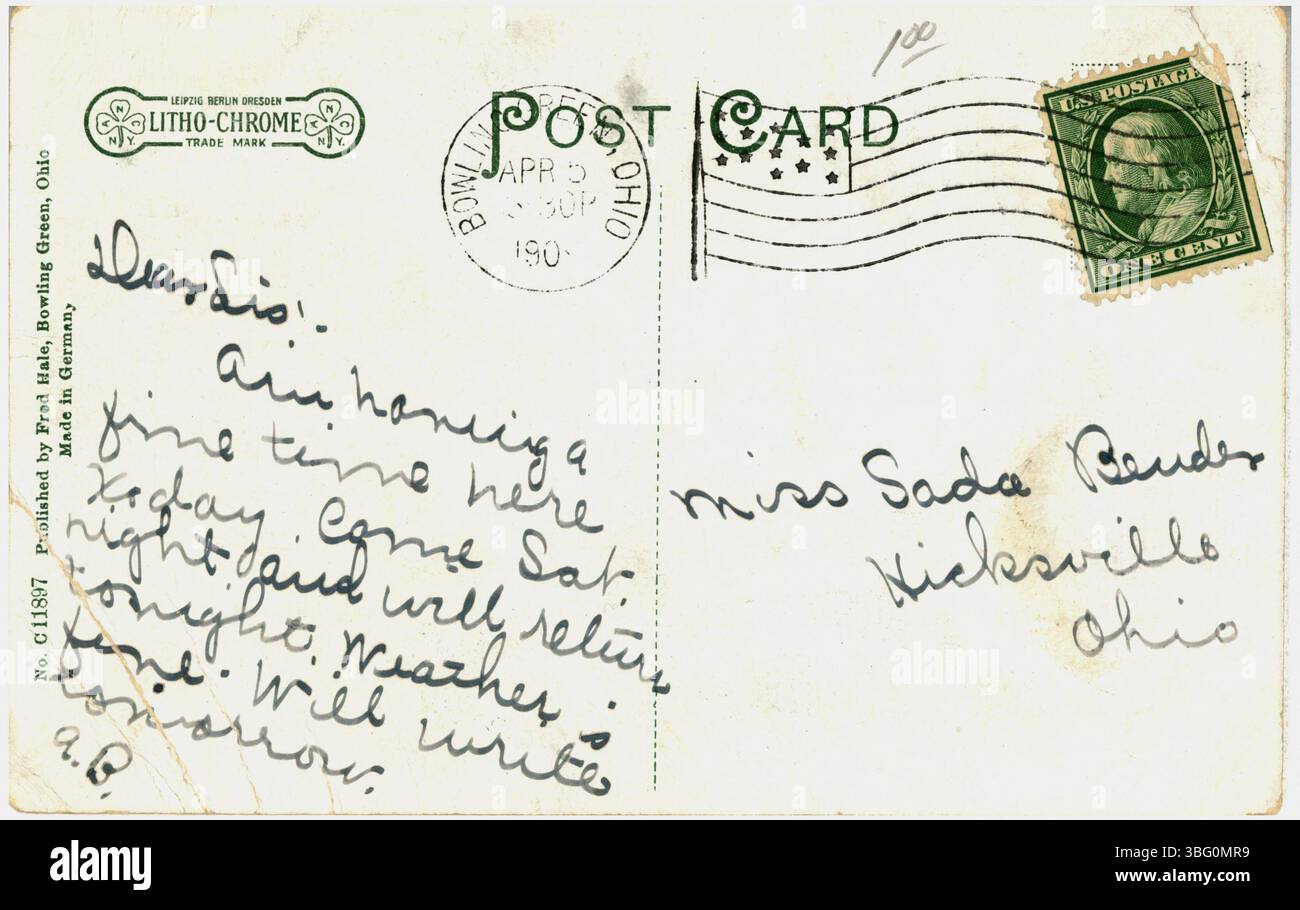 1.00
LEIPZIG BERLIN DRESDEN
LITHO-CHROME
TRADE MARK
N C N Y.
N K N Y.
POST CARD
BOWLING GREEN, OHIO
APR 5
30 P
190
U.S. POSTAGE
ONE CENT
No. C11897 Published by Fred Hale, Bowling Green, Ohio
Made in Germany
Dear Sis:
Am having a
fine time here
today. Came Sat.
night and will return
tonight. Weather is
fine. Will write
tomorrow.
A.B.
Miss Sada Bender
Hicksville
Ohio
alamy
alamy
Image ID: 3BG0MR9
www.alamy.com